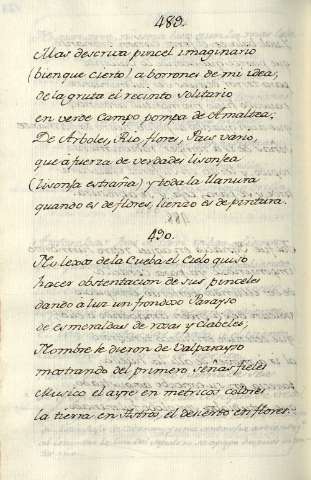 489.
Mas descriva pincel imaginario
(bien que cierto) a borrones de mi idea,
de la gruta el recinto solitario
en verde campo pompa de Amaltea.
De Arboles, Rio, flores, Pais vario,
que a fuerza de verdades lisonjea
(lisonja estraña) y toda la llanura
quando es de flores, lienzo es de pintura.
490.
No lexos de la Cueba el Cielo quiso
hacer obstentacion de sus pinceles
dando à luz un frondoso Parayso
de esmeraldas de rosas y Clabeles;
Nombre le dieron de Valparayso
mostrando del primero señas fieles
Musico el ayre en metricos colores
la tierra en Astros, el desierto en flores.